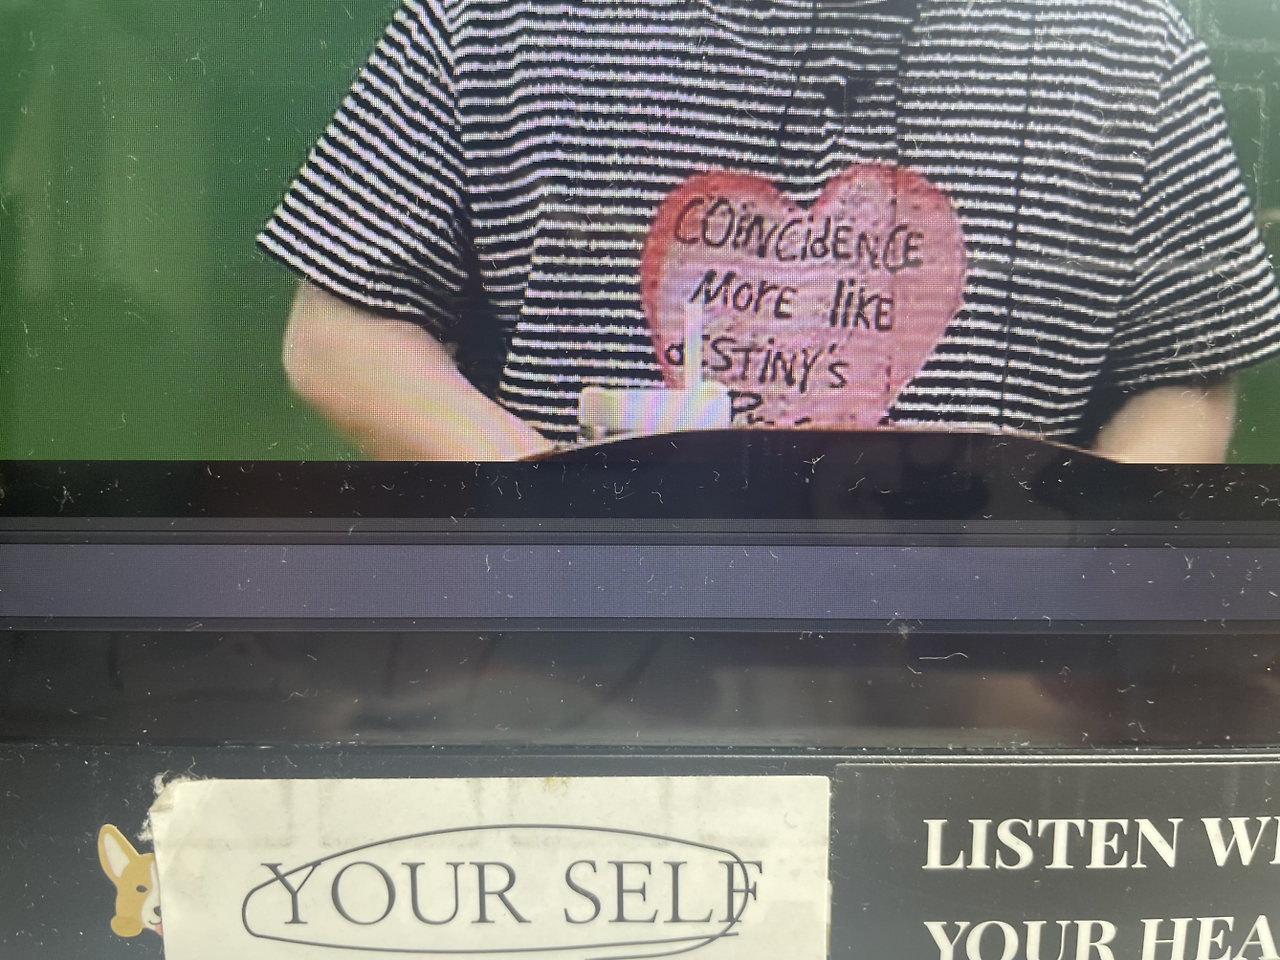 COiNCidENCE
MorE likE
dESTiNY's
YOUR SELF
LISTEN
YOUR